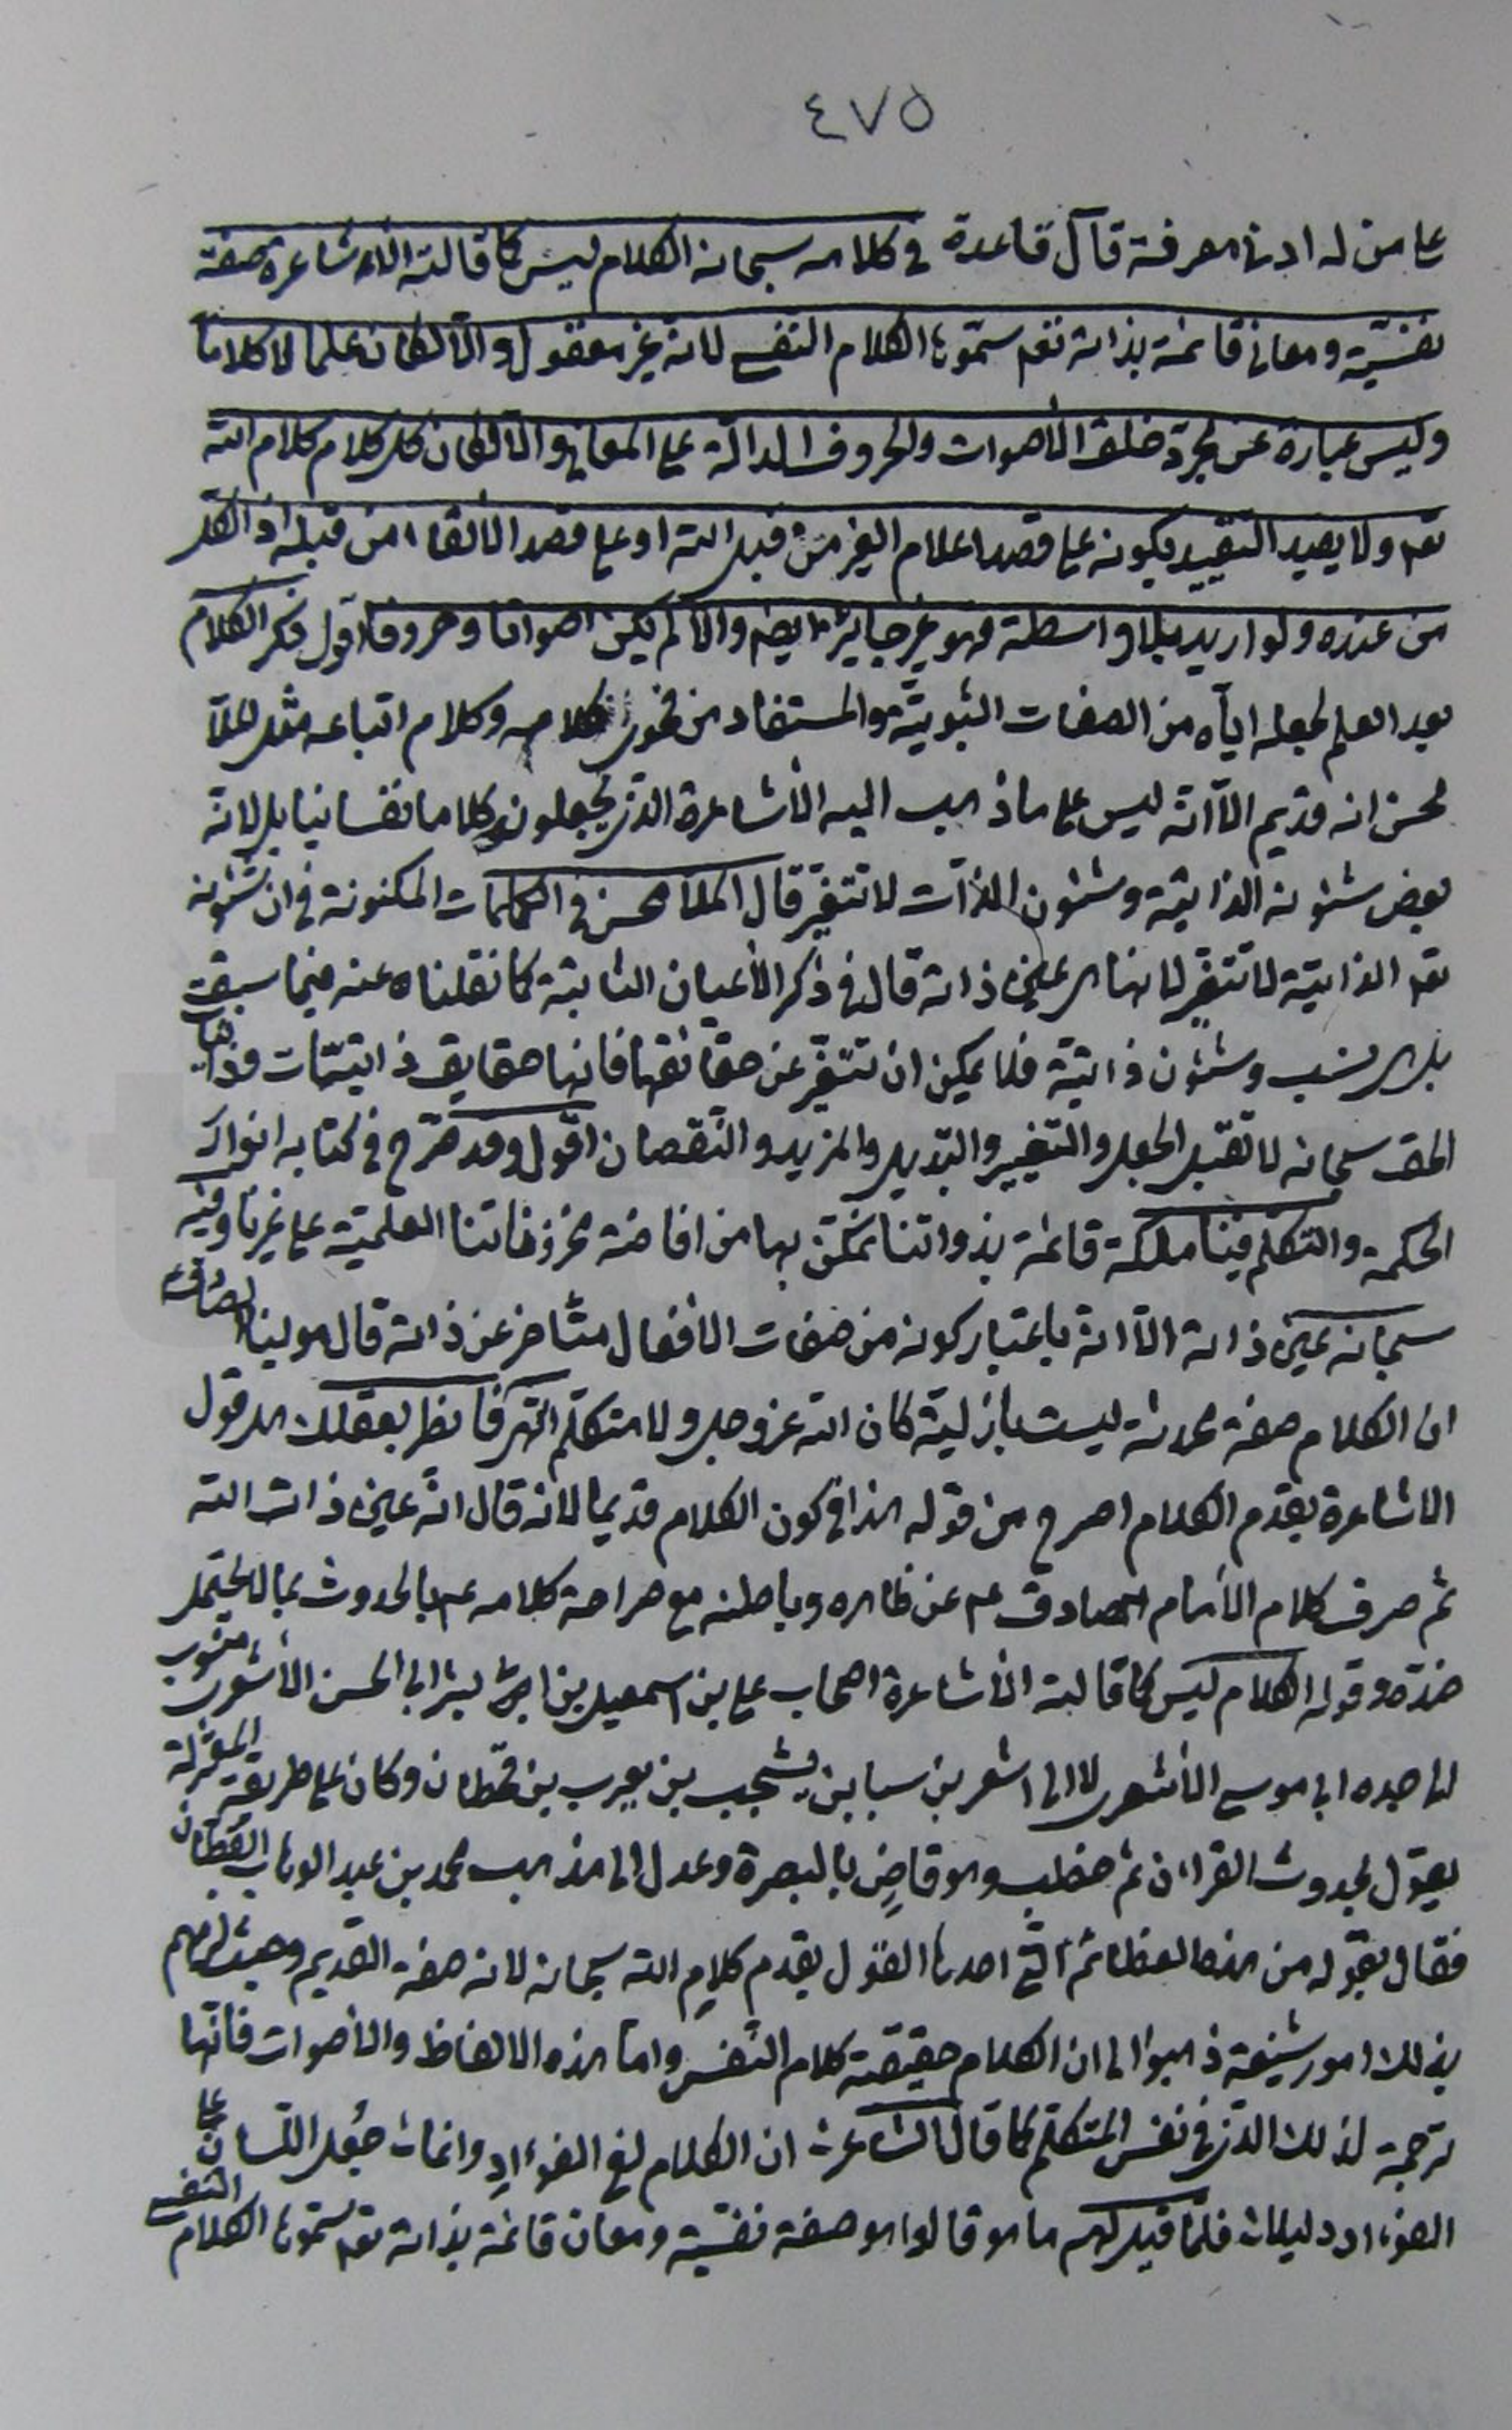 ٤٧٥
على من له ادنى معرفة قال قاعدة في كلامه سبحانه الكلام ليس كما قالته الاشاعرة صفة
نفسيّة ومعاني قائمة بذاته تعم سمّوها الكلام النفسي لانه غير معقول والّا لكان علما لا كلاما
وليس عبارة عن مجرّد خلق الأصوات والحروف الدالّة على المعاني والّا لكان كل كلام كلام الله
تعم ولا يفيد التقييد بكونه على قصد اعلام الغير من قبل الله او على قصد الالقاء من قبله اذ الكل
من عنده ولو اريد بلا واسطة فهو غير جايز ايضا والّا لم يكن اصواتا وحروفا اقول ذكر الكلام
بعد العلم لجعله ايّاه من الصفات الثبوتيّة والمستفاد من فحوى كلامه وكلام اتباعه مثل الملّا
محسن انه قديم الّا انّه ليس على ما ذهب اليه الأشاعرة الذين يجعلونه كلاما نفسانيا بل لانّه
بعض شئونه الذاتيّة وشئون الذّات لا تتغيّر قال الملّا محسن في الكلمات المكنونة في ان شئونه
تعم الذاتيّة لا تتغيّر لانها هي عين ذاته قال في ذكر الأعيان الثابتة كما نقلناه عنه فيما سبق
بل هي نسب وشئون ذاتيّة فلا يمكن ان تتغيّر عن حقائقها فانها حقايق ذاتيّات وذاتيات
الحق سبحانه لا تقبل الجعل والتغيير والتبديل والمزيد والنقصان اقول وقد صرّح في كتابه انوار
الحكمة والتكلم فينا ملكة قائمة بذواتنا نتمكّن بها من افاضة مخزوناتنا العلميّة على غيرنا وفيه
سبحانه عين ذاته الّا انّه باعتبار كونه من صفات الأفعال متأخر عن ذاته قال مولينا الصادق ع
ان الكلام صفة محدثة ليست بأزليّة كان الله عزوجل ولا متكلّم انتهى فانظر بعقلك هل قول
الاشاعرة بقدم الكلام اصرح من قوله هذا في كون الكلام قديما لانه قال انّه عين ذات الله
ثم صرف كلام الأمام الصادق عم عن ظاهره وباطنه مع صراحة كلامه عم بالحدوث بما لا يحتمل
ضدّه وقوله الكلام ليس كما قالته الأشاعرة اصحاب علي بن اسمعيل بن ابي بشر ابي الحسن الأشعري منسوب
الى جده ابي موسى الأشعري لا الى اشعر بن سبا بن يشجب بن يعرب بن قحطان وكان على طريقة المعتزلة
يقول بحدوث القران ثم خطب وهو قاضٍ بالبصرة وعدل الى مذهب محمد بن عبد الوهاب القطّان
فقال بقوله من هذه العظائم الّتي احدها القول بقدم كلام الله سبحانه لانه صفة القديم وحيث لزمهم
بذلك امور شنيعة ذهبوا الى ان الكلام حقيقة كلام النّفس وامّا هذه الالفاظ والأصوات فانّها
ترجمة لذلك الذي في نفس المتكلّم كما قال الشاعر ان الكلام لفي الفوءادِ وانما جُعل اللّسان على
الفوءاد دليلا فلمّا قيل لهم ما هو قالوا هو صفة نفسيّة ومعان قائمة بذاته تعم سمّوها الكلام النفسي